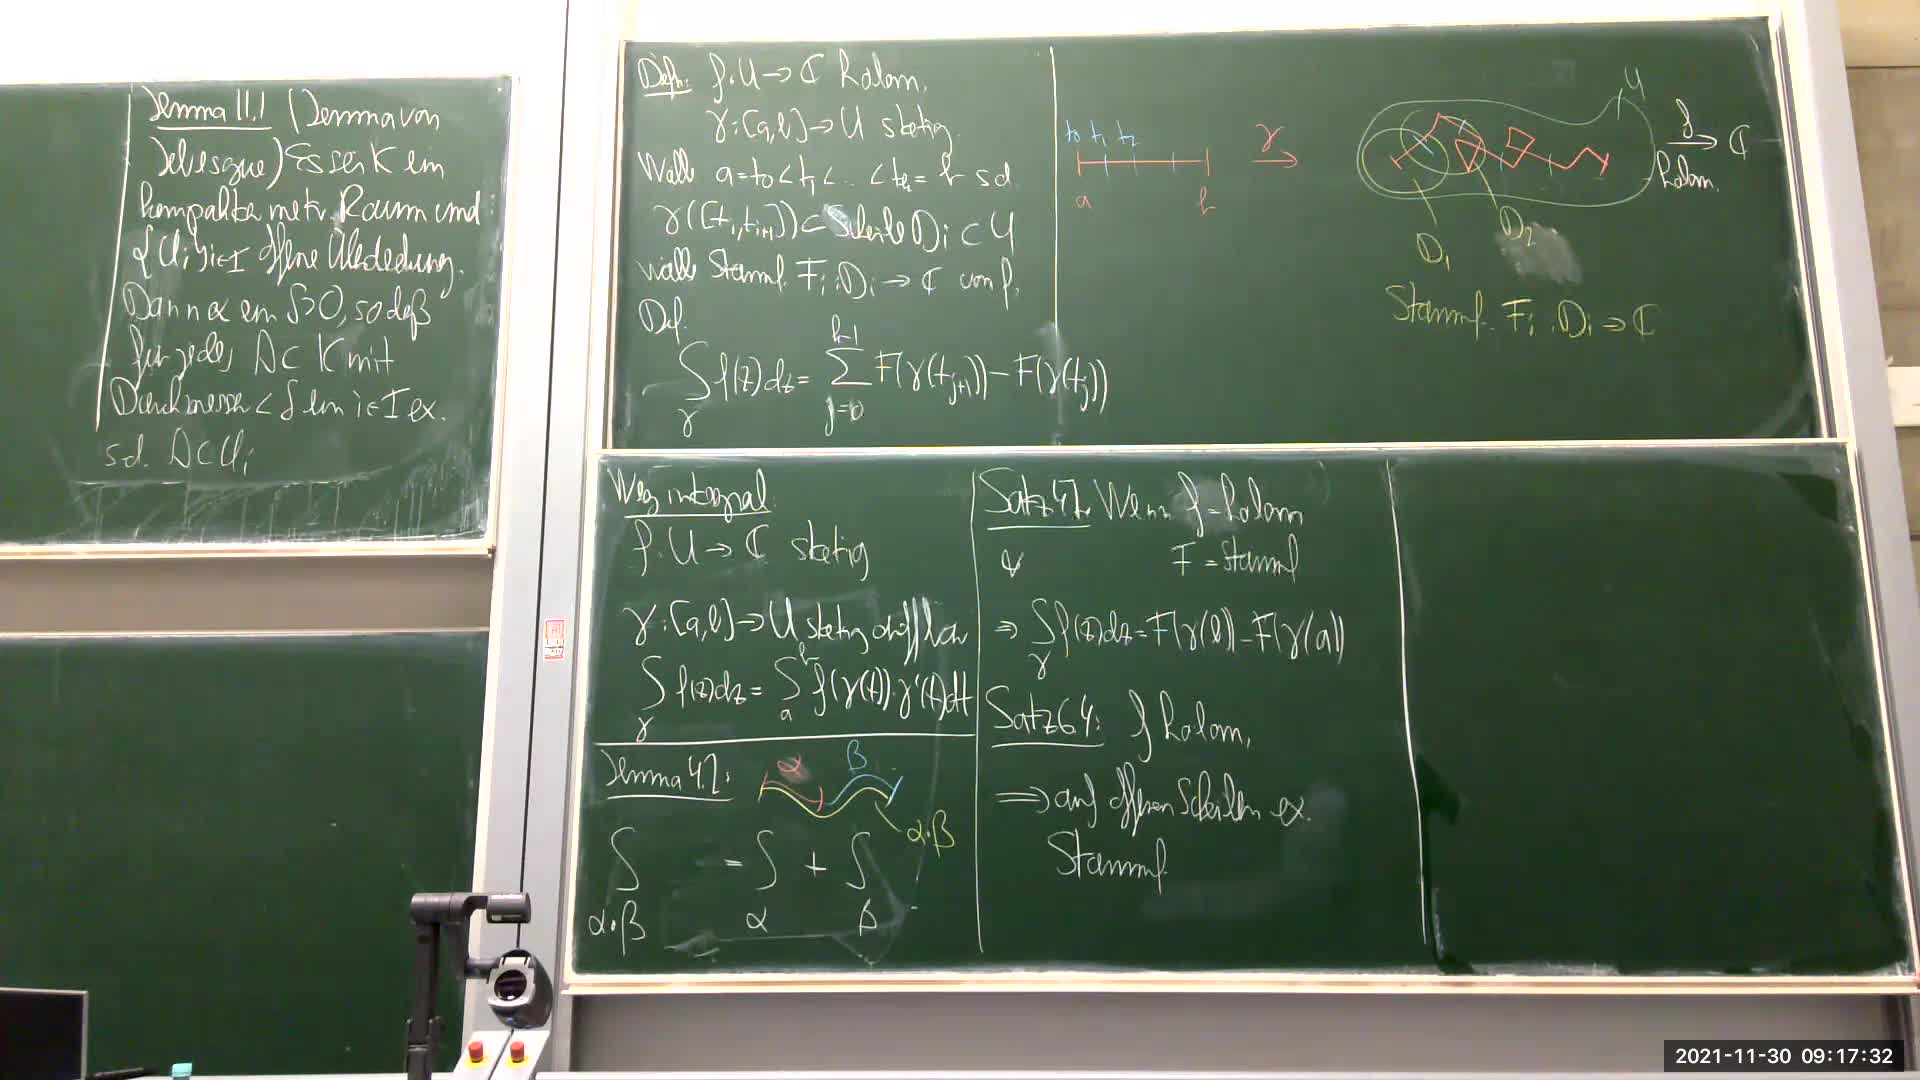 Lemma 11.1 (Lemma von
Lebesgue) Es sei K ein
kompakter metr. Raum und
{Ui}i∈I offene Überdeckung.
Dann ex ein δ>0, so daß
für jedes A⊂K mit
Durchmesser < δ ein i∈I ex.
sd. A⊂Ui
Defn: f:U→ℂ holom,
γ:[a,b]→U stetig.
Wähle a=t0<t1<..<tk=b sd
γ([ti,ti+1])⊂ Scheibe Di⊂U
wähle Stammf. Fi:Di→ℂ von f.
Def.
∫γ f(z)dz = ∑j=0k-1 F(γ(tj+1))−F(γ(tj))
t0 t1 t2
a b
γ
U
f
→ℂ
holom.
D1
D2
Stammf. Fi:Di→ℂ
Wegintegral
f:U→ℂ stetig
γ:[a,b]→U stetig diffbar
∫γ f(z)dz = ∫ab f(γ(t))·γ'(t)dt
Lemma 4.2:
α β
α·β
∫α·β = ∫α + ∫β
Satz 4.7. Wenn f=holom
F=Stammf
⇒ ∫γ f(z)dz=F(γ(b))−F(γ(a))
Satz 6.4: f holom,
⇒ auf offenen Scheiben ex.
Stammf.
2021-11-30 09:17:32